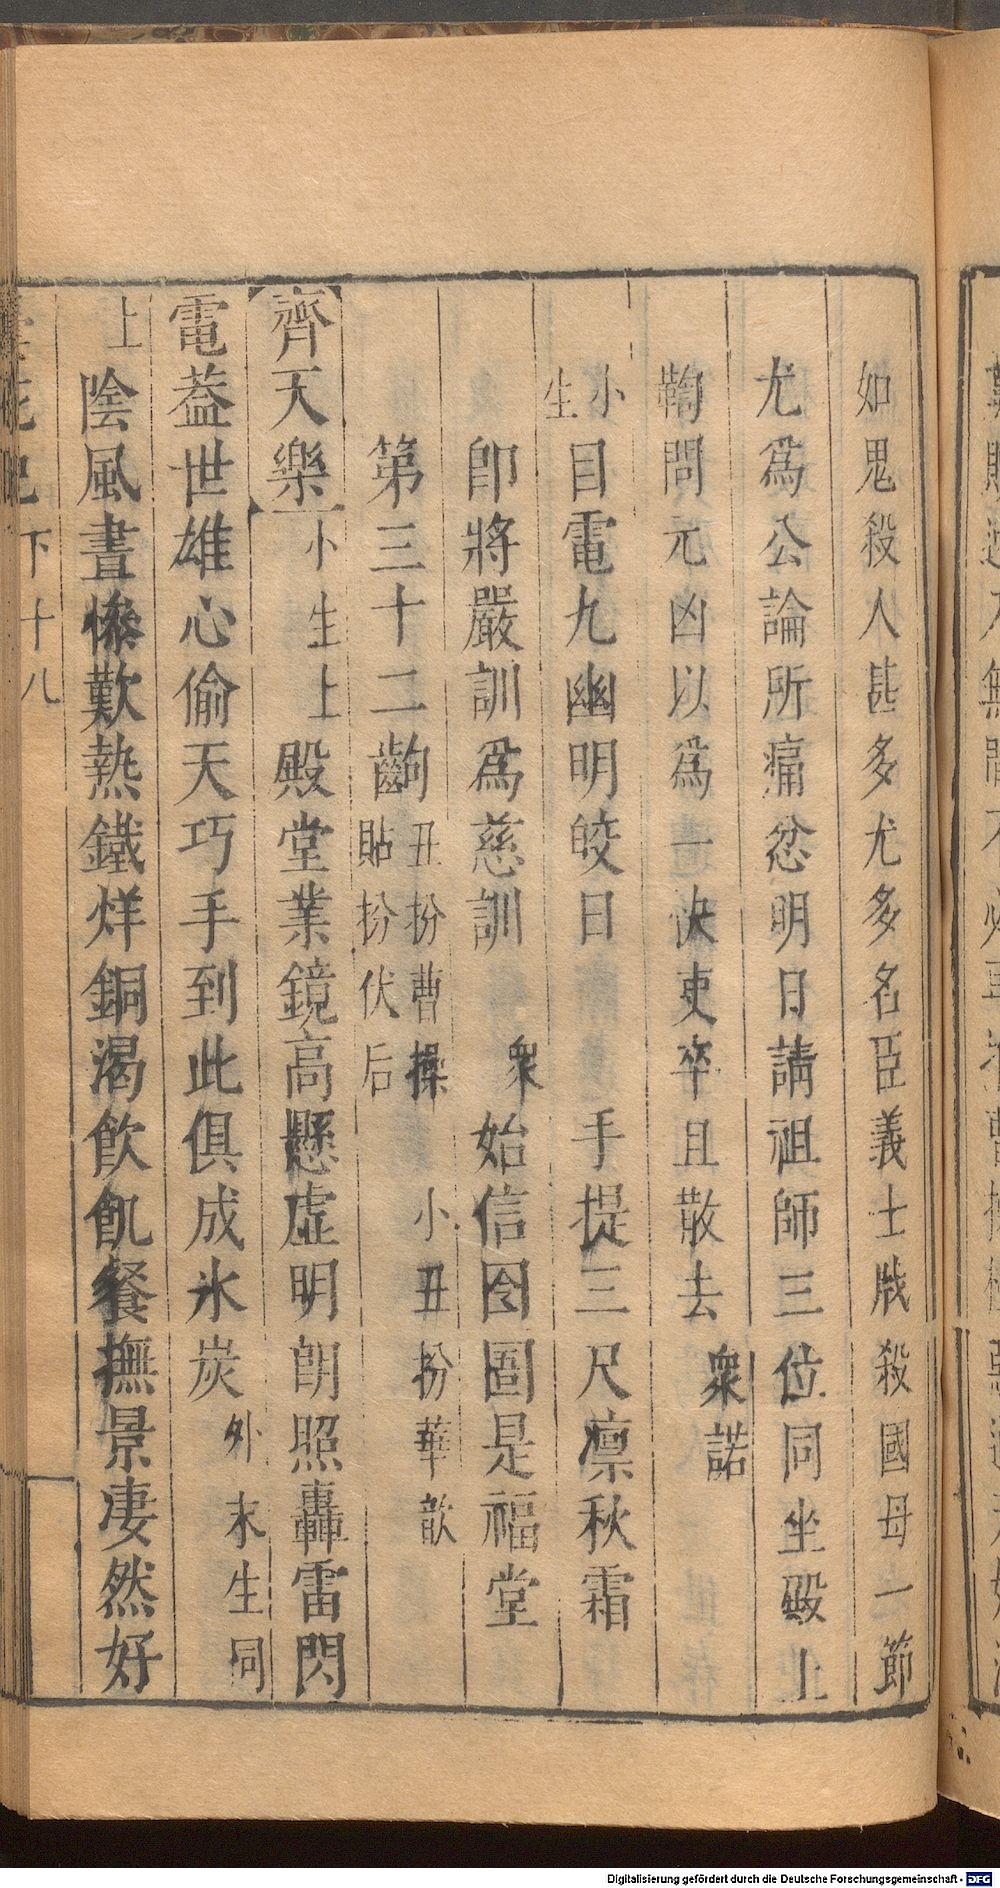 如鬼殺人甚多尤多名臣義士戕殺國母一節
尤爲公論所痛忿明日請祖師三位同坐殿上
鞫問元凶以爲一快吏卒且散去衆諾
小生目電九幽明皎日手提三尺凛秋霜
卽將嚴訓爲慈訓衆始信囹圄是福堂
第三十二齣丑扮曹操小丑扮華歆
貼扮伏后
齊天樂小生上殿堂業鏡高懸虛明朗照轟雷閃
電蓋世雄心偷天巧手到此俱成氷炭外末生同
上陰風晝慘歎熱鐵烊銅渴飲飢餐撫景凄然好
下十八
Digitalisierung gefördert durch die Deutsche Forschungsgemeinschaft - DFG